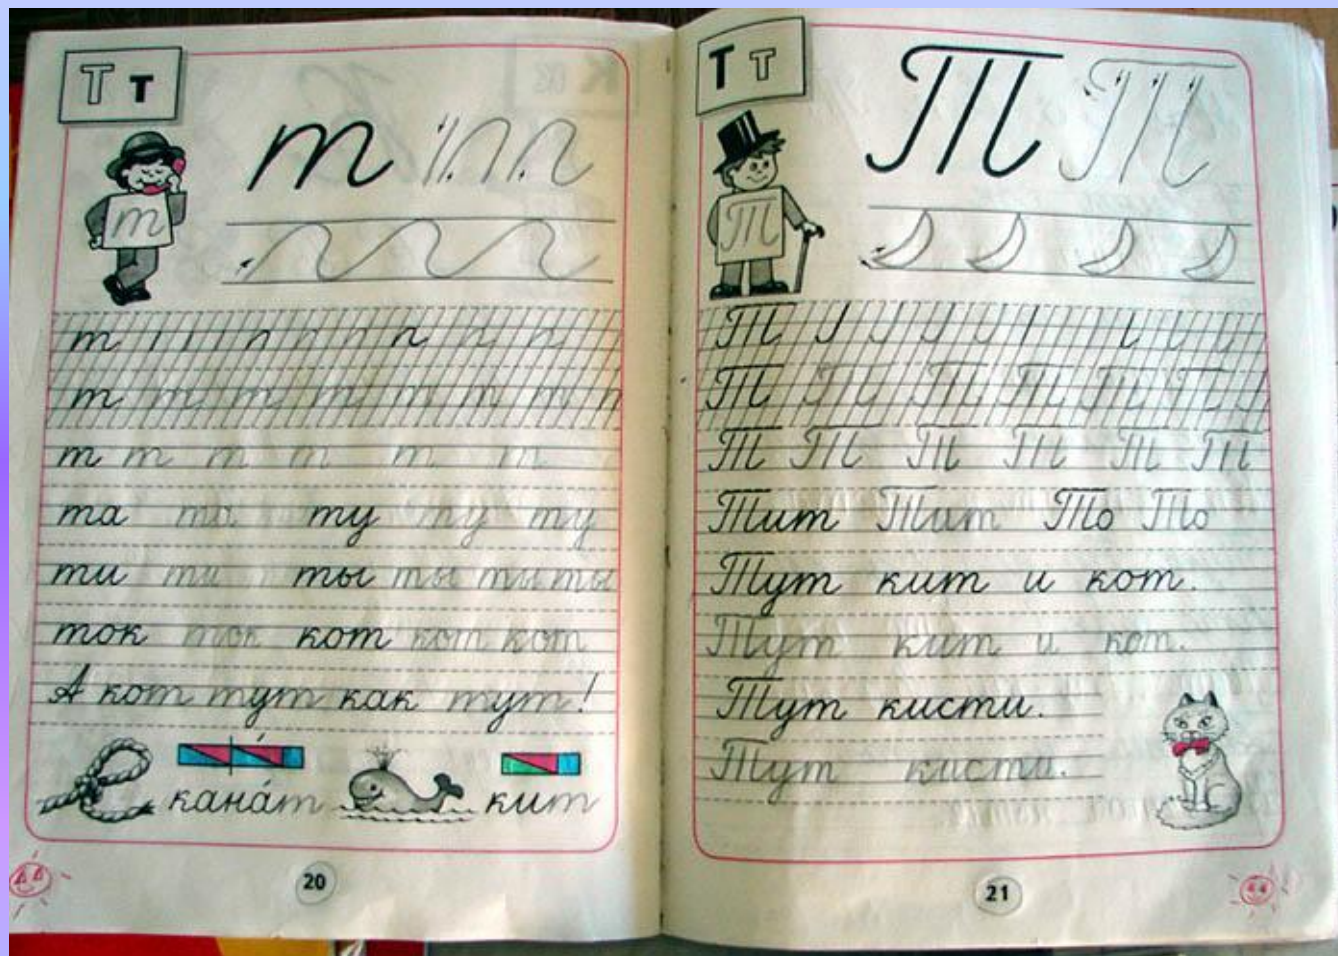 Т т
т
т
т
т т т т т т т т
т т т т т т
та та ту ту ту
ти ти ты ты ты ты
ток ток кот кот кот
А кот тут как тут!
кана́т кит
20
Т т
Т Т
Т
Т
Т Т Т Т Т Т
Т Т Т Т Т Т
Тит Тит То То
Тут кит и кот.
Тут кит и кот.
Тут кисти.
Тут кисти.
21